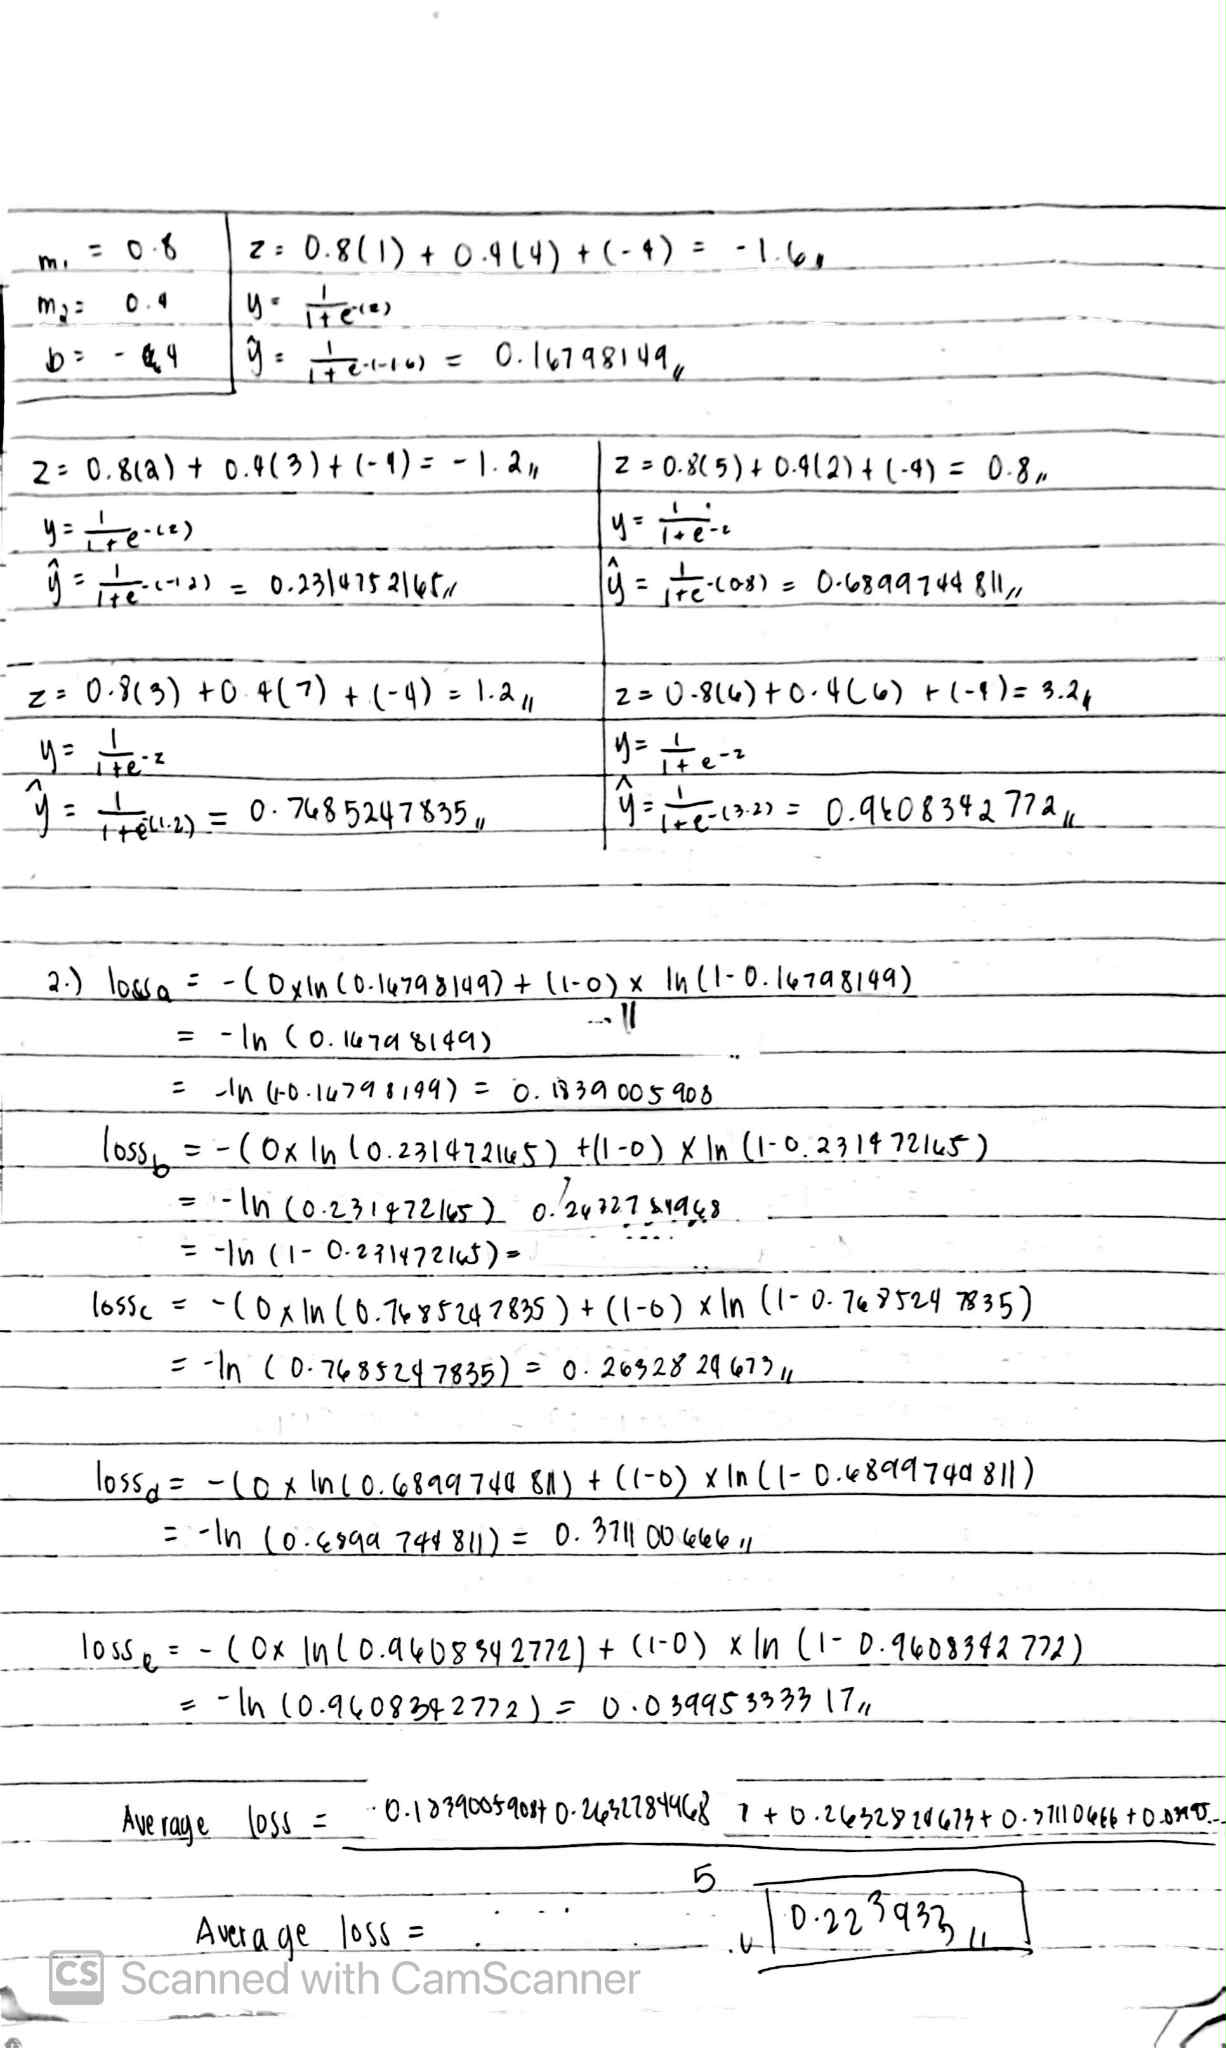 m₁ = 0.8
m₂ = 0.4
b = - 4
z = 0.8(1) + 0.4(4) + (-4) = -1.6
y = 1/1+e-(z)
ŷ = 1/1+e-(-1.6) = 0.16798149
z = 0.8(2) + 0.4(3) + (-4) = -1.2
y = 1/1+e-(z)
ŷ = 1/1+e-(-1.2) = 0.2314752165
z = 0.8(5) + 0.4(2) + (-4) = 0.8
y = 1/1+e-z
ŷ = 1/1+e-(0.8) = 0.6899744811
z = 0.8(3) + 0.4(7) + (-4) = 1.2
y = 1/1+e-z
ŷ = 1/1+e-(1.2) = 0.7685247835
z = 0.8(6) + 0.4(6) + (-4) = 3.2
y = 1/1+e-z
ŷ = 1/1+e-(3.2) = 0.9608342772
2.) lossa = -(0xln(0.16798149) + (1-0) x ln(1-0.16798149)
= -ln(0.16798149)
= -ln(1-0.16798149) = 0.1839005908
lossb = -(0x ln(0.231472165) + (1-0) x ln(1-0.231472165)
= -ln(0.231472165)
= -ln(1-0.231472165) =
lossc = -(0xln(0.7685247835) + (1-0) x ln(1-0.7685247835)
= -ln(0.7685247835) = 0.2632824673
lossd = -(0 x ln(0.6899744811) + (1-0) x ln(1-0.6899744811)
= -ln(0.6899744811) = 0.371100666
losse = -(0x ln(0.9608342772) + (1-0) x ln(1-0.9608342772)
= -ln(0.9608342772) = 0.03995333317
Average loss = 0.1839005908+ 0.2632784468 + 0.2632824673 + 0.37110666 +
5
Average loss = 0.223933
CS Scanned with CamScanner